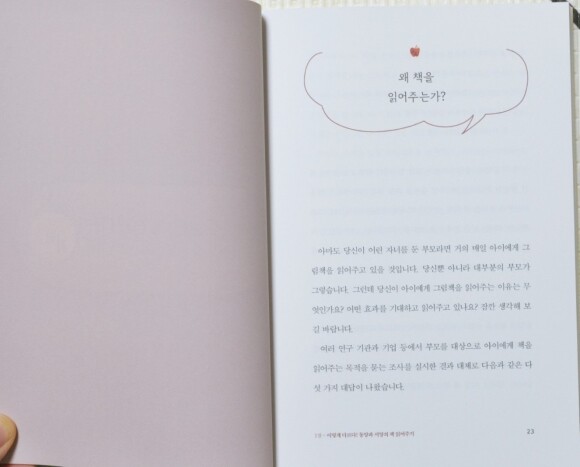 왜 책을
읽어주는가?
아마도 당신이 어린 자녀를 둔 부모라면 거의 매일 아이에게 그
림책을 읽어주고 있을 것입니다. 당신뿐 아니라 대부분의 부모가
그렇습니다. 그런데 당신이 아이에게 그림책을 읽어주는 이유는 무
엇인가요? 어떤 효과를 기대하고 읽어주고 있나요? 잠깐 생각해 보
길 바랍니다.
여러 연구 기관과 기업 등에서 부모를 대상으로 아이에게 책을
읽어주는 목적을 묻는 조사를 실시한 결과 대체로 다음과 같은 다
섯 가지 대답이 나왔습니다.
동양과 서양의 책 읽어주기
23